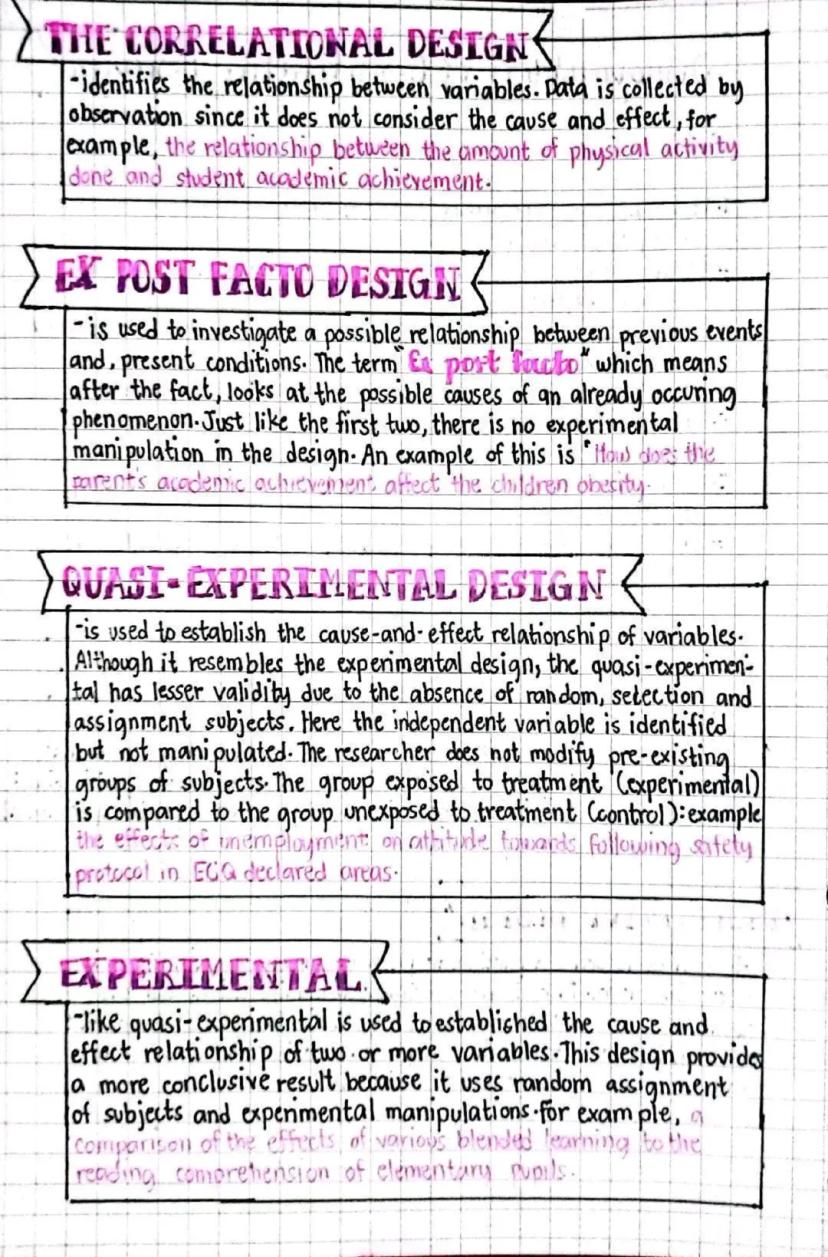 THE CORRELATIONAL DESIGN
-identifies the relationship between variables. Data is collected by
observation since it does not consider the cause and effect, for
example, the relationship between the amount of physical activity
done and student academic achievement.
EX POST FACTO DESIGN
-is used to investigate a possible relationship between previous events
and, present conditions. The term "Ex post facto" which means
after the fact, looks at the possible causes of an already occuring
phenomenon. Just like the first two, there is no experimental
manipulation in the design. An example of this is "How does the
parent's academic achievement affect the children obesity.
QUASI-EXPERIMENTAL DESIGN
-is used to establish the cause-and-effect relationship of variables.
Although it resembles the experimental design, the quasi-experimen-
tal has lesser validity due to the absence of random, selection and
assignment subjects. Here the independent variable is identified
but not manipulated. The researcher does not modify pre-existing
groups of subjects. The group exposed to treatment (experimental)
is compared to the group unexposed to treatment (control): example
the effects of unemployment on attitude towards following safety
protocol in ECQ declared areas.
EXPERIMENTAL
-like quasi-experimental is used to established the cause and
effect relationship of two or more variables. This design provides
a more conclusive result because it uses random assignment
of subjects and experimental manipulations. for example, a
comparison of the effects of various blended learning to the
reading comprehension of elementary pupils.